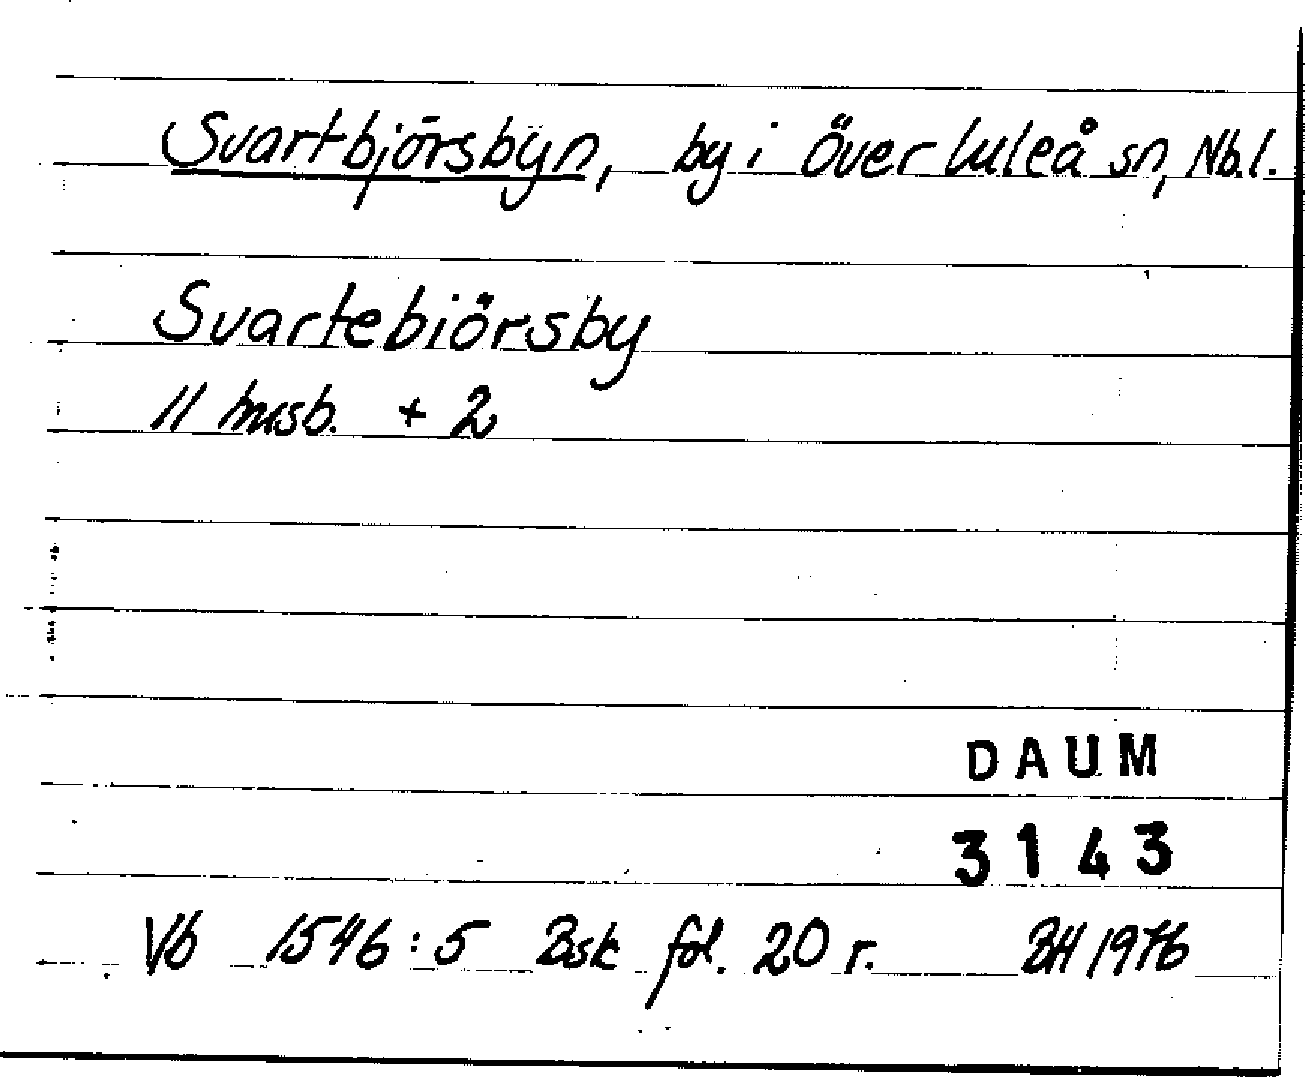 Svartbjörsbyn, by i Överluleå sn, Nb.l.
Svartebiörsby
11 husb. + 2
DAUM
3143
Vb 1546:5 Bsk fol. 20 r. BH 1976